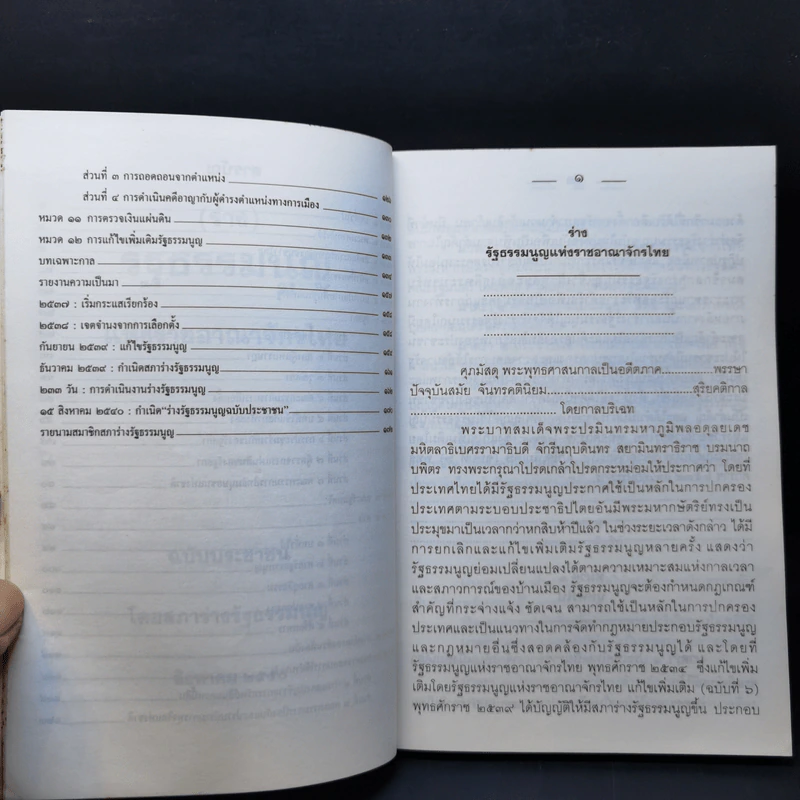 ส่วนที่ ๓ การถอดถอนจากตำแหน่ง
ส่วนที่ ๔ การดำเนินคดีอาญากับผู้ดำรงตำแหน่งทางการเมือง
หมวด ๑๑ การตรวจเงินแผ่นดิน
หมวด ๑๒ การแก้ไขเพิ่มเติมรัฐธรรมนูญ
บทเฉพาะกาล
รายงานความเป็นมา
๒๕๓๗ : เริ่มกระแสเรียกร้อง
๒๕๓๘ : เจตจำนงจากการเลือกตั้ง
กันยายน ๒๕๓๙ : แก้ไขรัฐธรรมนูญ
ธันวาคม ๒๕๓๙ : กำเนิดสภาร่างรัฐธรรมนูญ
๒๓๓ วัน : การดำเนินงานร่างรัฐธรรมนูญ
๑๕ สิงหาคม ๒๕๔๐ : กำเนิด"ร่างรัฐธรรมนูญฉบับประชาชน"
รายนามสมาชิกสภาร่างรัฐธรรมนูญ
๑
ร่าง
รัฐธรรมนูญแห่งราชอาณาจักรไทย
ศุภมัสดุ พระพุทธศาสนกาลเป็นอดีตภาค..............พรรษา
ปัจจุบันสมัย จันทรคตินิยม..............................สุริยคติกาล
..............................โดยกาลบริเฉท
พระบาทสมเด็จพระปรมินทรมหาภูมิพลอดุลยเดช
มหิตลาธิเบศรรามาธิบดี จักรีนฤบดินทร สยามินทราธิราช บรมนาถ
บพิตร ทรงพระกรุณาโปรดเกล้าโปรดกระหม่อมให้ประกาศว่า โดยที่
ประเทศไทยได้มีรัฐธรรมนูญประกาศใช้เป็นหลักในการปกครอง
ประเทศตามระบอบประชาธิปไตยอันมีพระมหากษัตริย์ทรงเป็น
ประมุขมาเป็นเวลากว่าหกสิบห้าปีแล้ว ในช่วงระยะเวลาดังกล่าว ได้มี
การยกเลิกและแก้ไขเพิ่มเติมรัฐธรรมนูญหลายครั้ง แสดงว่า
รัฐธรรมนูญย่อมเปลี่ยนแปลงได้ตามความเหมาะสมแห่งกาลเวลา
และสภาวการณ์ของบ้านเมือง รัฐธรรมนูญจะต้องกำหนดกฎเกณฑ์
สำคัญที่กระจ่างแจ้ง ชัดเจน สามารถใช้เป็นหลักในการปกครอง
ประเทศและเป็นแนวทางในการจัดทำกฎหมายประกอบรัฐธรรมนูญ
และกฎหมายอื่นซึ่งสอดคล้องกับรัฐธรรมนูญได้ และโดยที่
รัฐธรรมนูญแห่งราชอาณาจักรไทย พุทธศักราช ๒๕๓๔ ซึ่งแก้ไขเพิ่ม
เติมโดยรัฐธรรมนูญแห่งราชอาณาจักรไทย แก้ไขเพิ่มเติม (ฉบับที่ ๖)
พุทธศักราช ๒๕๓๙ ได้บัญญัติให้มีสภาร่างรัฐธรรมนูญขึ้น ประกอบ